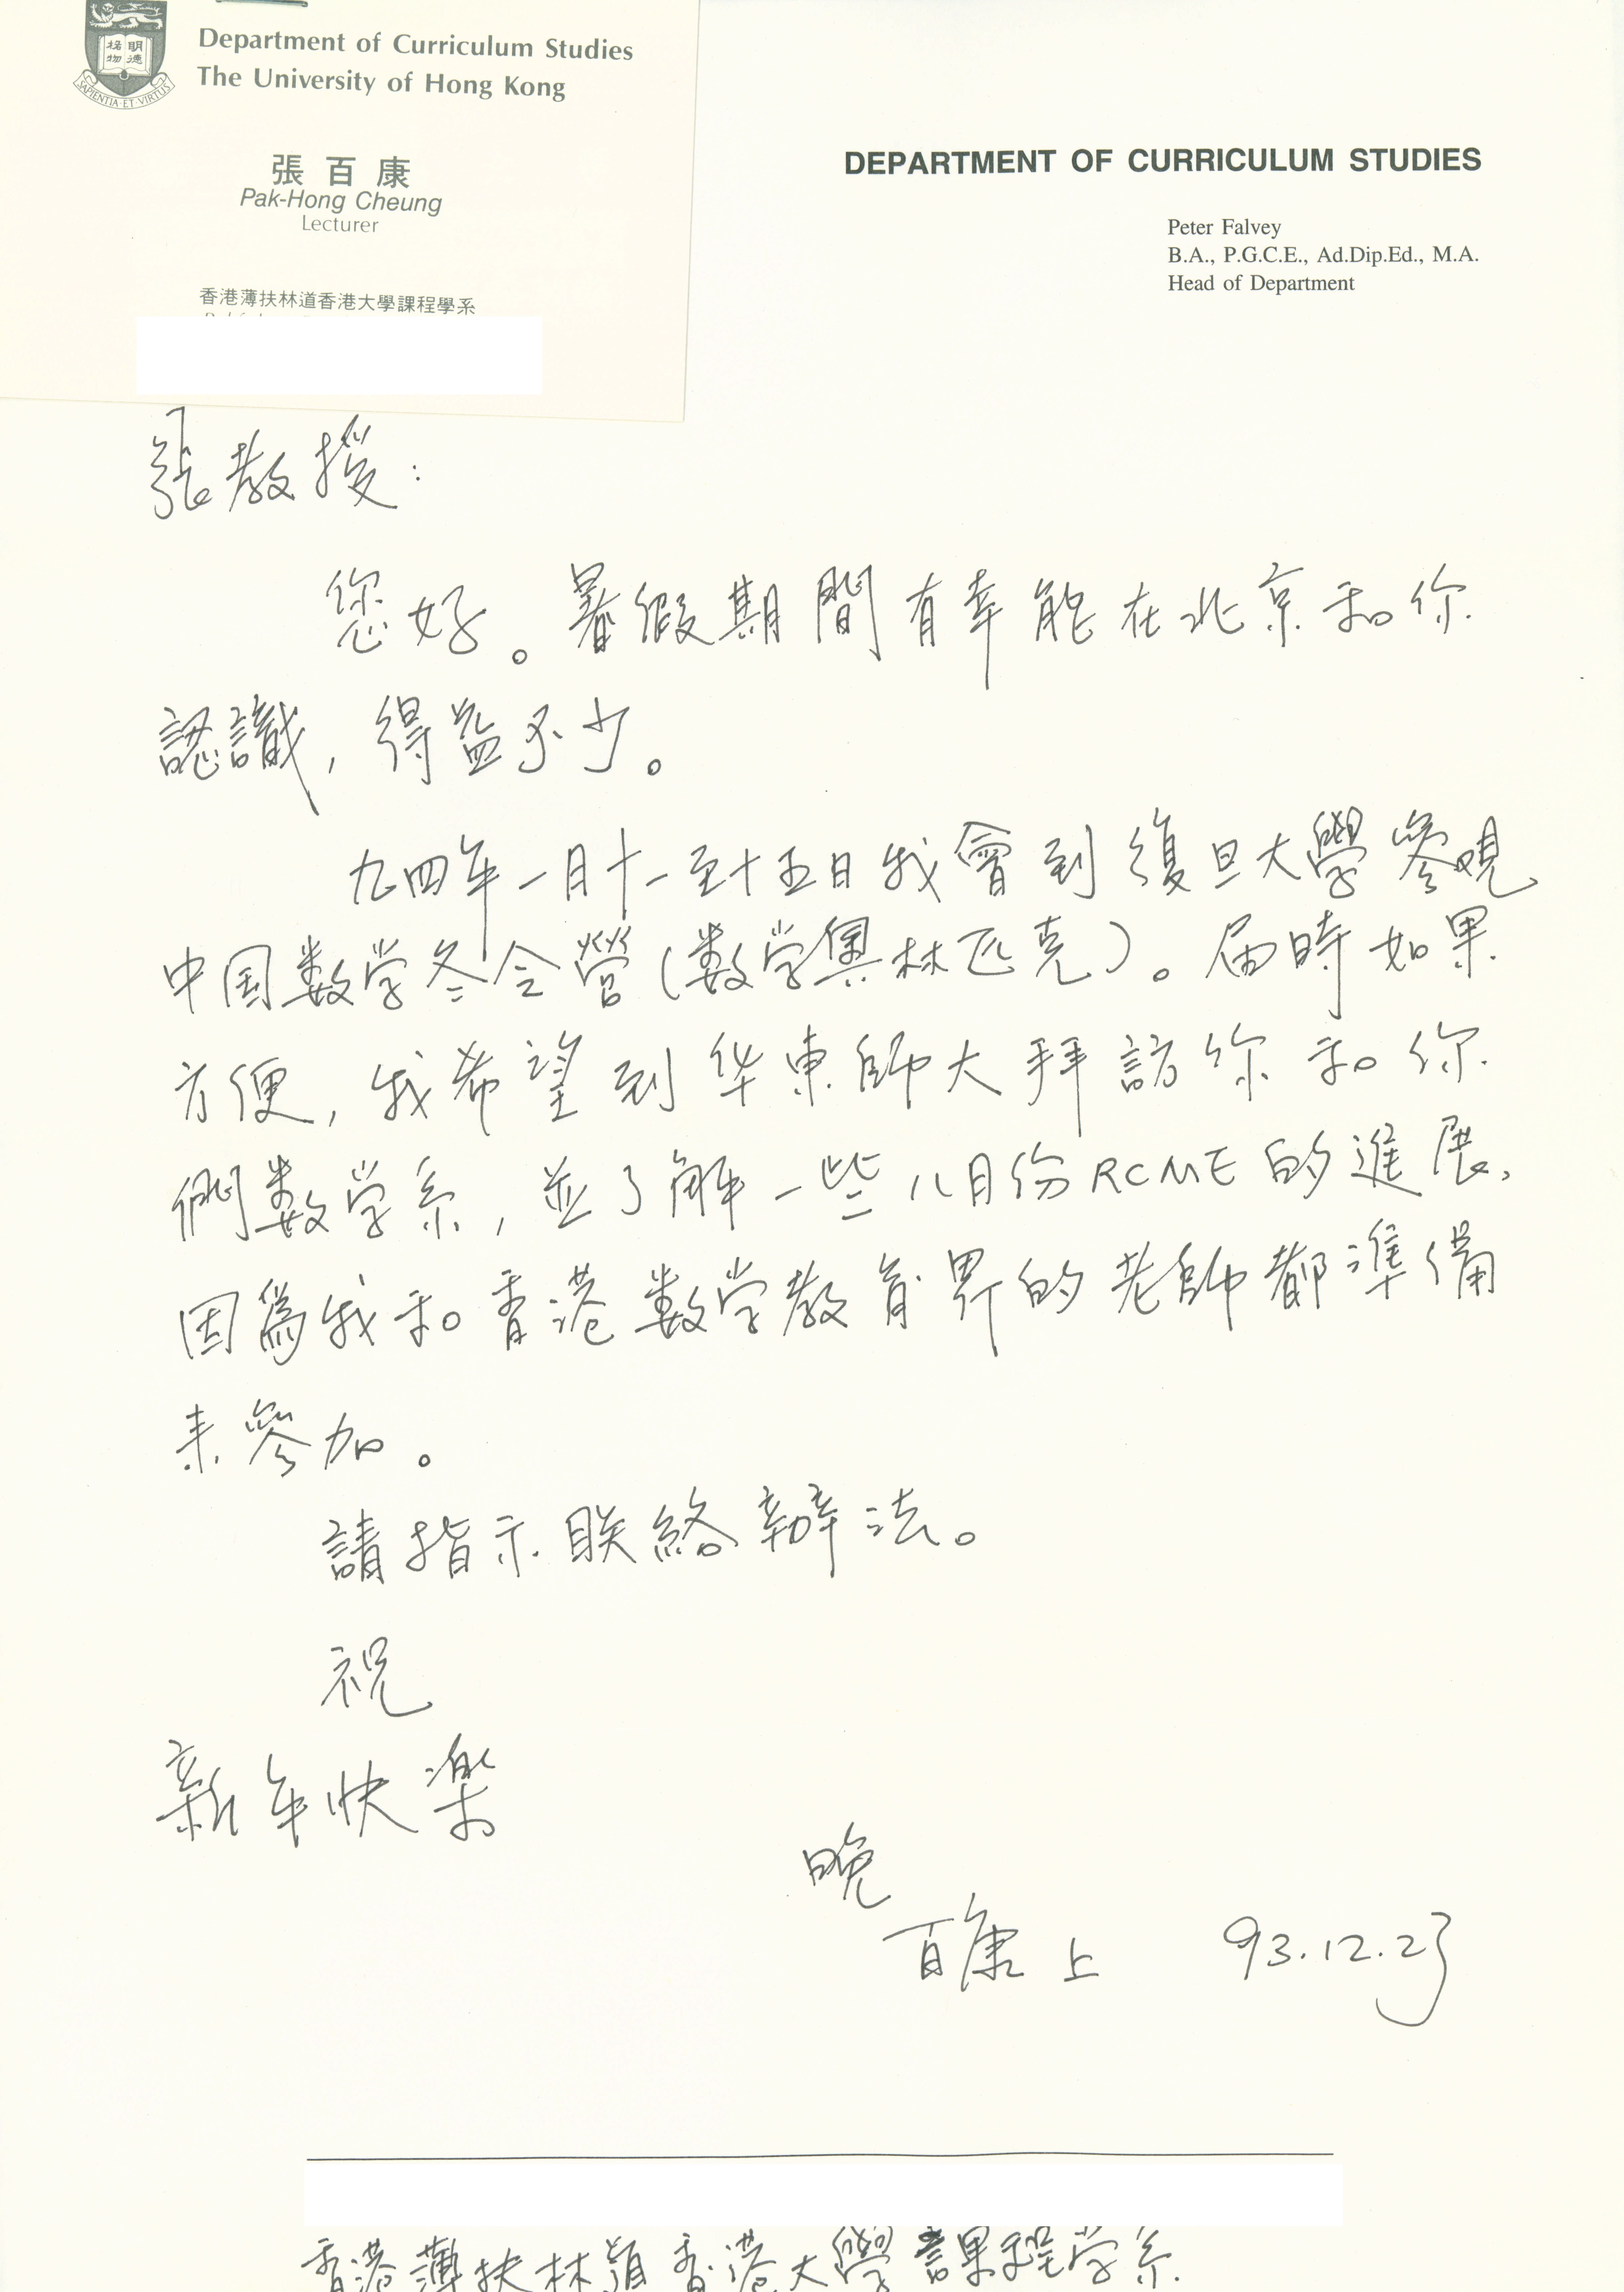 明德
格物
SAPIENTIA·ET·VIRTUS
Department of Curriculum Studies
The University of Hong Kong
張百康
Pak-Hong Cheung
Lecturer
香港薄扶林道香港大學課程學系
DEPARTMENT OF CURRICULUM STUDIES
Peter Falvey
B.A., P.G.C.E., Ad.Dip.Ed., M.A.
Head of Department
張教授:
您好。暑假期間有幸能在北京和你
認識,得益不少。
九四年一月十一至十五日我會到復旦大學參覌
中国数学冬令營(数学奧林匹克)。届時如果
方便,我希望到华東師大拜訪你和你
們数学系,並了解一些八月份RCME的進展,
因爲我和香港数学教育界的老師都準備
来參加。
請指示联絡辦法。
祝
新年快樂
晚
百康上 93.12.23
香港薄扶林道香港大學課程学系